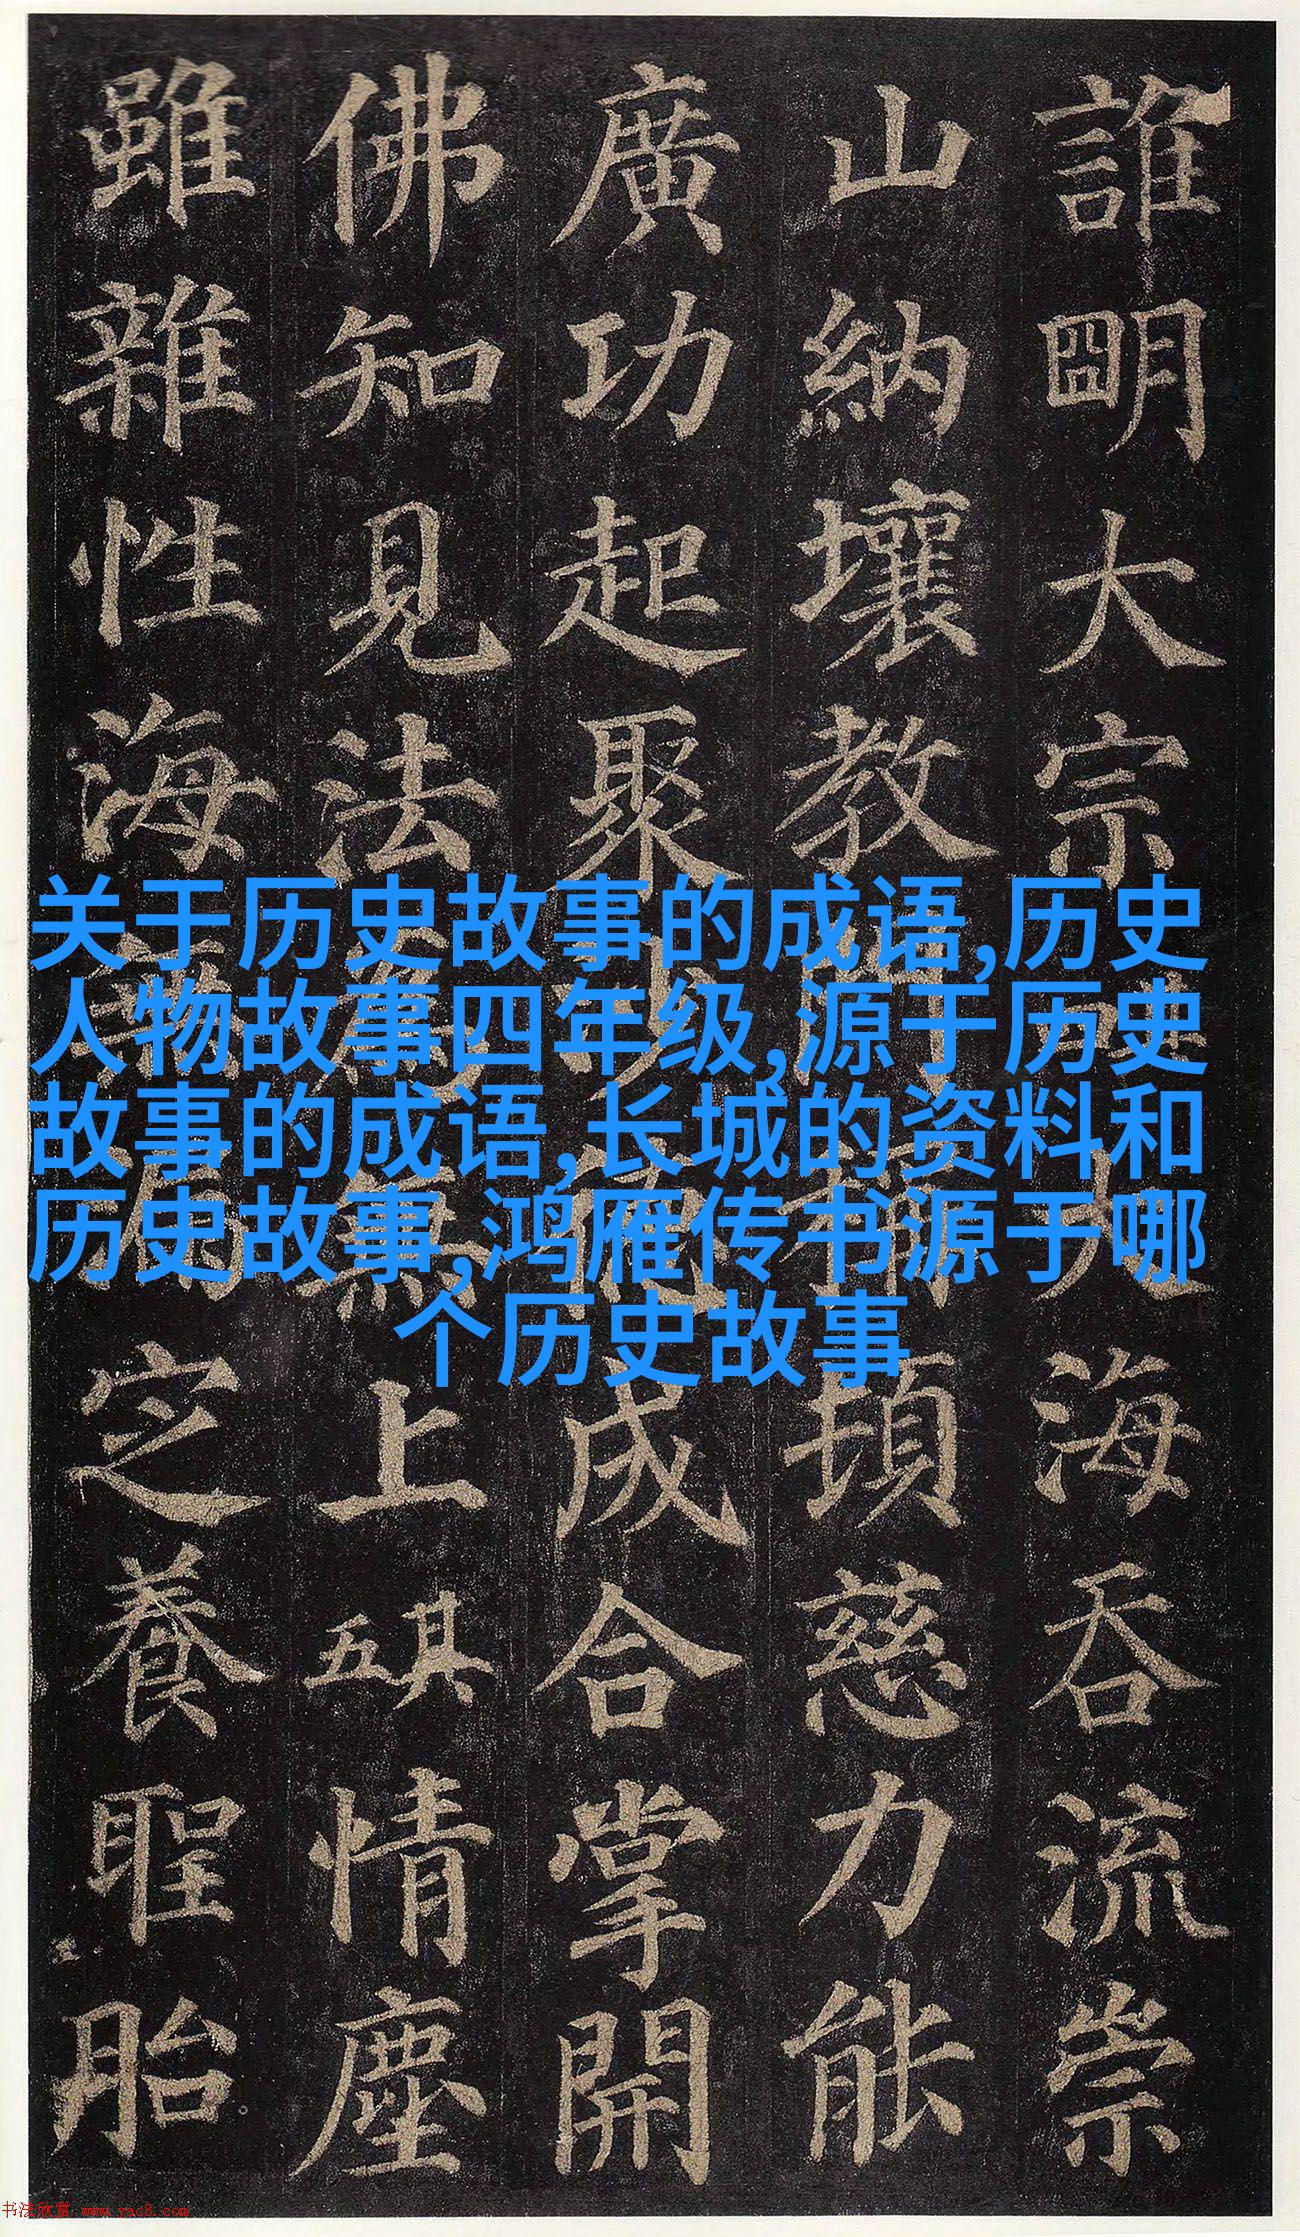 誰明大宗大海吞流崇
山納壤教頓慈力能
廣功起聚成合掌開
佛知見法無上其五情塵
雖雜性海定養聖胎
关于历史故事的成语,历史
人物故事四年级,源于历史
故事的成语,长城的资料和
历史故事,鸿雁传书源于哪
个历史故事
书法欣赏 www.yac8.com